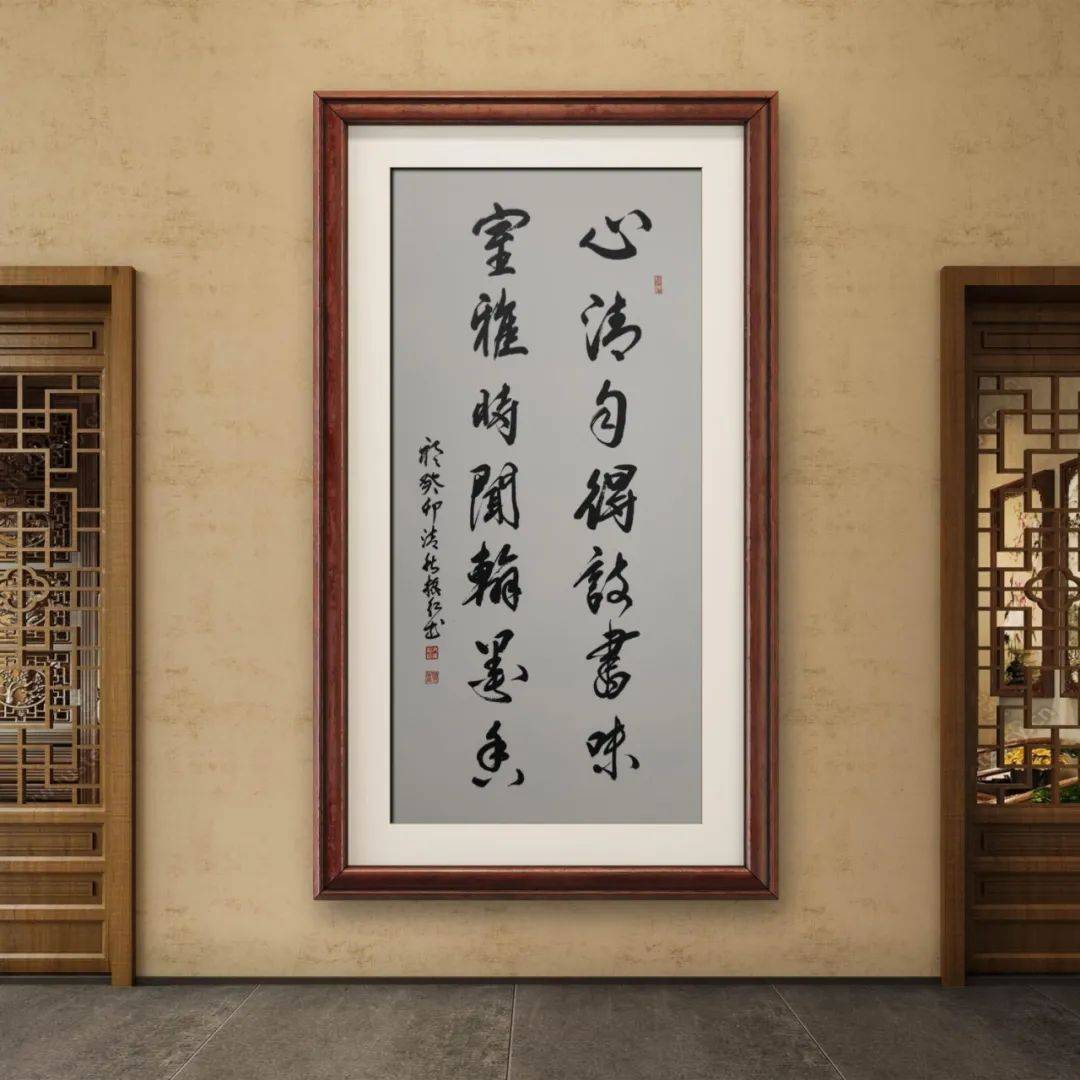 心清自得诗書味
室雅時聞翰墨香
於癸卯清秋振红书